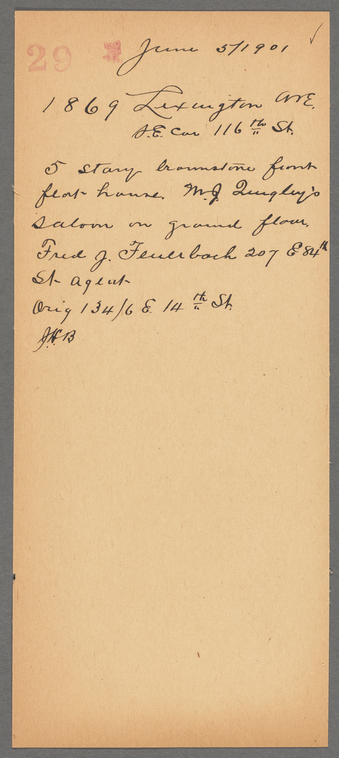 29
June 5/1901
1869 Lexington Ave.
S.E. Cor 116th St.
5 story brownstone front
flat house. M.J. Quigley's
saloon on ground floor.
Fred J. Feuerbach 207 E 84th
St. agent
Orig 134/6 E. 14th St.
J.H.B